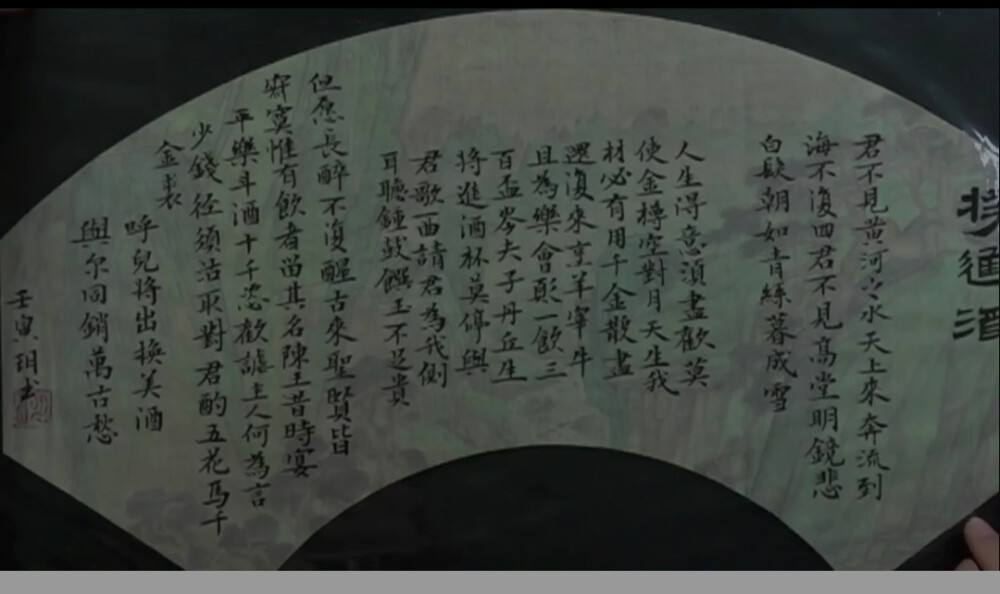 將進酒
君不見黃河之水天上來奔流到
海不復回君不見高堂明鏡悲
白髮朝如青絲暮成雪
人生得意須盡歡莫
使金樽空對月天生我
材必有用千金散盡
還復來烹羊宰牛
且為樂會須一飲三
百盃岑夫子丹丘生
將進酒杯莫停與
君歌一曲請君為我側
耳聽鍾鼓饌玉不足貴
但愿長醉不復醒古來聖賢皆
寂寞惟有飲者留其名陳王昔時宴
平樂斗酒十千恣歡謔主人何為言
少錢徑須沽取對君酌五花馬千
金裘
呼兒將出換美酒
與尔同銷萬古愁
壬寅玥书